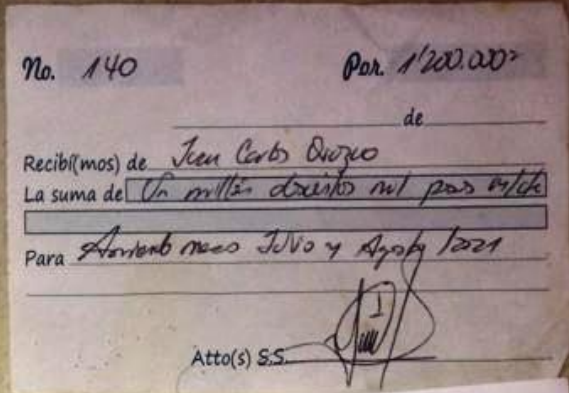 No. 140 Por. 1'200.000=
de
Recibí(mos) de Juan Carlos Orozco
La suma de Un millón doscientos mil pesos m/cte
Para Arriendo meses Julio y Agosto /2021
Atto(s) S.S.